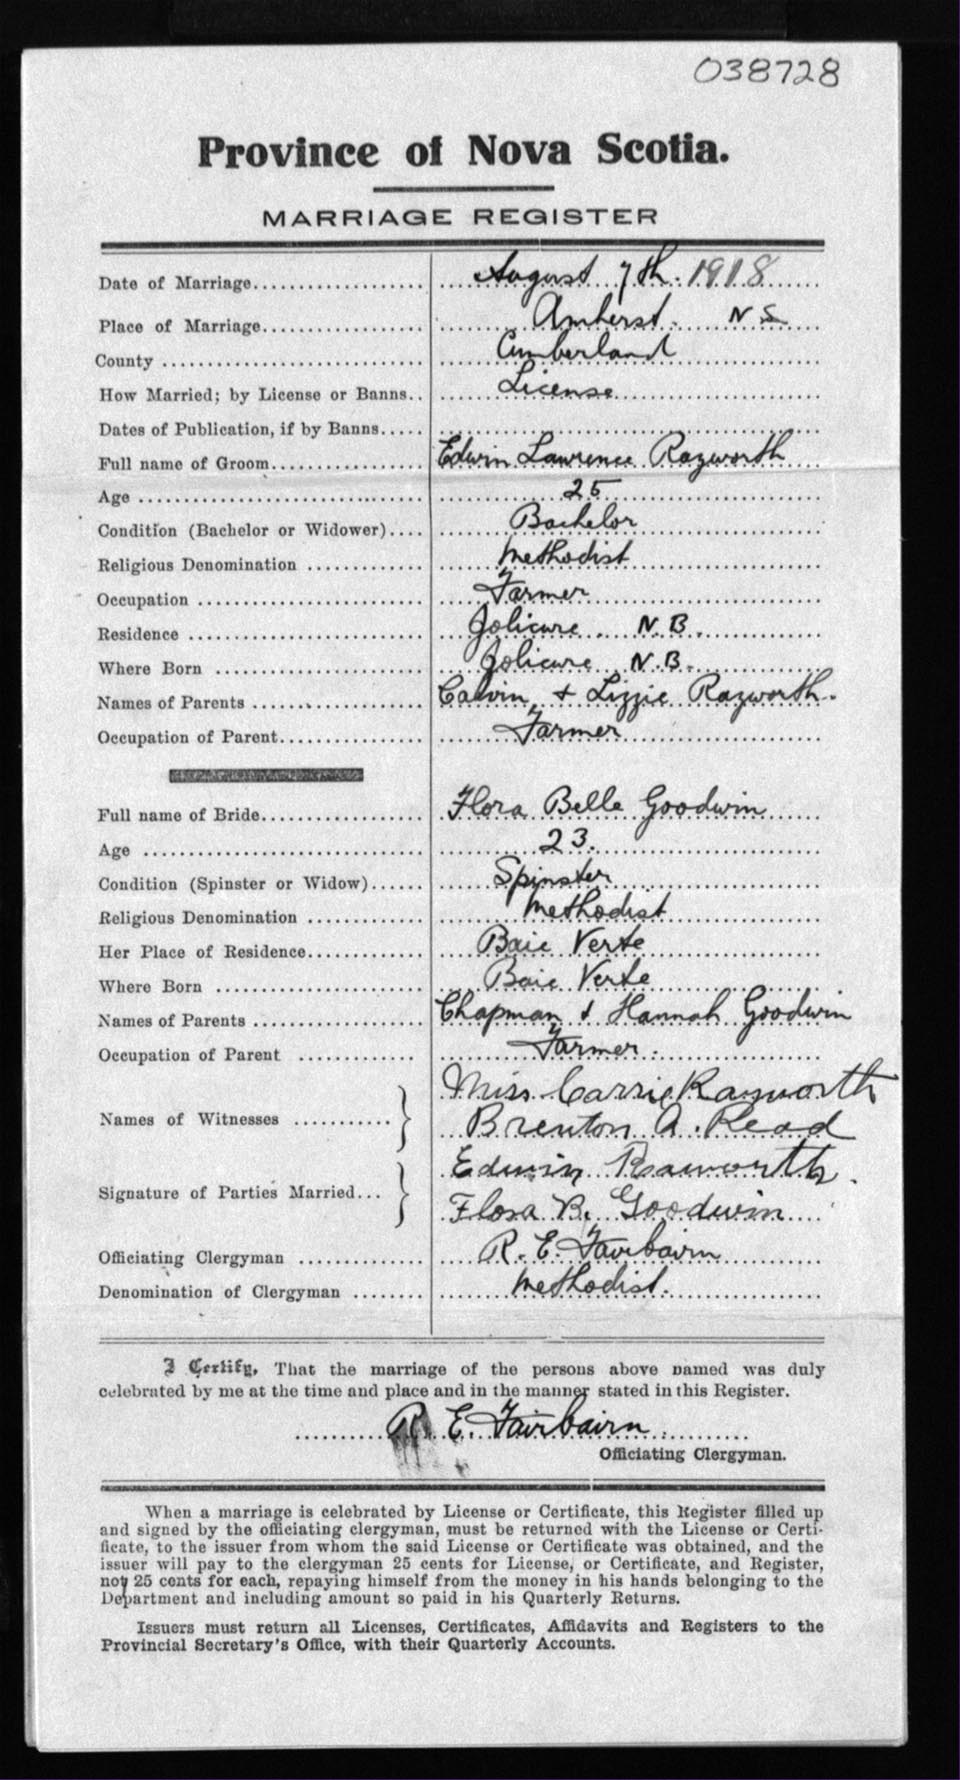 038728
Province of Nova Scotia.
MARRIAGE REGISTER
Date of Marriage................... August 7th. 1918
Place of Marriage.................. Amherst. N S
County ............................. Cumberland
How Married; by License or Banns.. License
Dates of Publication, if by Banns.....
Full name of Groom................. Edwin Lawrence Razworth
Age ............................... 25
Condition (Bachelor or Widower).... Bachelor
Religious Denomination ............. Methodist
Occupation ......................... Farmer
Residence .......................... Jolicure N.B.
Where Born ....................... Jolicure N.B.
Names of Parents ................... Calvin + Lizzie Razworth.
Occupation of Parent................ Farmer
Full name of Bride.................. Flora Belle Goodwin
Age ............................... 23.
Condition (Spinster or Widow)...... Spinster
Religious Denomination ............. Methodist
Her Place of Residence............. Baie Verte
Where Born ....................... Baie Verte
Names of Parents ................... Chapman & Hannah Goodwin
Occupation of Parent ............. Farmer.
Names of Witnesses ........... } Miss Carrie Rayworth
Brenton A. Read
Signature of Parties Married... } Edwin Raworth.
Flora B. Goodwin
Officiating Clergyman .............. R. E. Fairbairn
Denomination of Clergyman ........ Methodist.
I Certify, That the marriage of the persons above named was duly
celebrated by me at the time and place and in the manner stated in this Register.
R. E. Fairbairn
Officiating Clergyman.
When a marriage is celebrated by License or Certificate, this Register filled up
and signed by the officiating clergyman, must be returned with the License or Certi-
ficate, to the issuer from whom the said License or Certificate was obtained, and the
issuer will pay to the clergyman 25 cents for License, or Certificate, and Register,
not 25 cents for each, repaying himself from the money in his hands belonging to the
Department and including amount so paid in his Quarterly Returns.
Issuers must return all Licenses, Certificates, Affidavits and Registers to the
Provincial Secretary's Office, with their Quarterly Accounts.